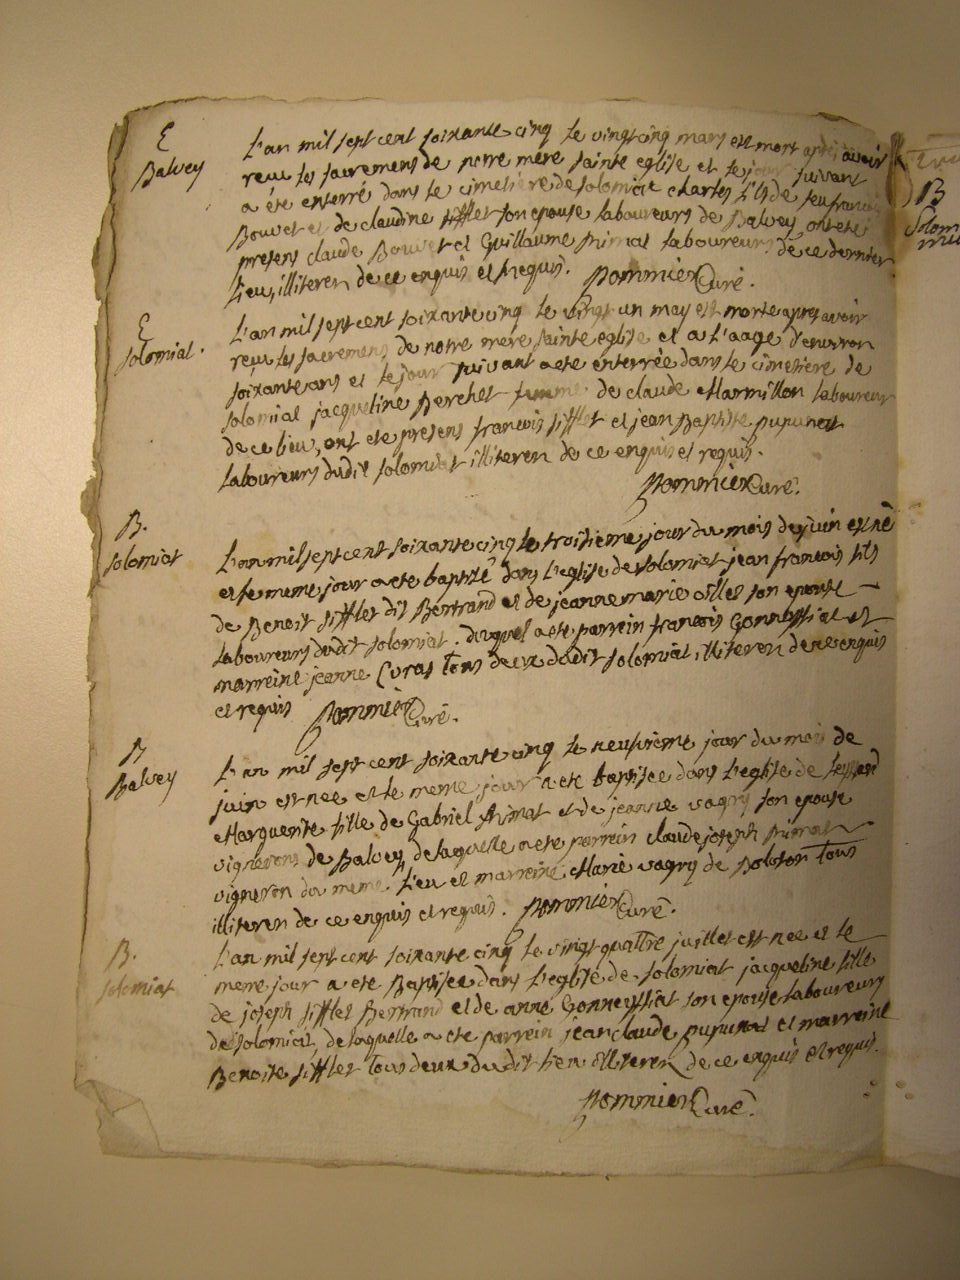 E
Balvey
L'an mil sept cent soixante cinq le vingt cinq mars est mort après avoir
reçu les sacremens de notre mere sainte eglise et le jour suivant
a été enterré dans le cimetiere de solomiat charles fils de feu francois
Bouvet et de claudine sifflet son epouse laboureurs de Balvey, ont eté
presens claude Bouvet et Guillaume primat laboureurs de ce dernier
lieu, illiteren de ce enquis et requis. pommier Curé.
E
solomiat.
L'an mil sept cent soixante cinq le vingt un may est morte apres avoir
reçu les sacremens de notre mere sainte eglise et a l'aage d'environ
soixante ans et le jour suivant a ete enterrée dans le cimetiere de
solomiat jacqueline Berchet femme de claude Marmillon laboureur
de ce lieu, ont ete presens francois sifflet et jean Baptiste pupunat
laboureurs dudit solomiat illiteren de ce enquis et requis.
pommier Curé.
B.
solomiat
L'an mil sept cent soixante cinq le troisieme jour du mois de juin est né
et le meme jour a ete baptizé dans l'eglise de solomiat jean francois fils
de Benoit sifflet dit Bertrand et de jeanne marie son epouse
laboureurs dudit solomiat. duquel a ete parrein francois Gonnessiat et
marreine jeanne Curas tous deux dudit solomiat, illiteren de ce enquis
et requis pommier Curé.
B
Balvey
L'an mil sept cent soixante cinq le neufvieme jour du moi de
juin est nee et le meme jour a ete baptisee dans l'eglise de
Marguerite fille de Gabriel primat et de jeanne vagry son epouse
vignerons de Balvey, de laquelle a ete parrein claude joseph primat
vigneron du meme lieu et marreine Marie vagry de Boloson tous
illiteren de ce enquis et requis. pommier Curé.
B.
solomiat
L'an mil sept cent soixante cinq le vingt quattre juillet est nee et le
meme jour a ete Baptisee dans l'eglise de solomiat jacqueline fille
de joseph sifflet Bertrand et de anne Gonnessiat son epouse laboureurs
de solomiat, de laquelle a ete parrein jean claude pupunat et marreine
Benoite sifflet tous deux dudit lieu illiteren de ce enquis et requis.
pommier Curé.
B